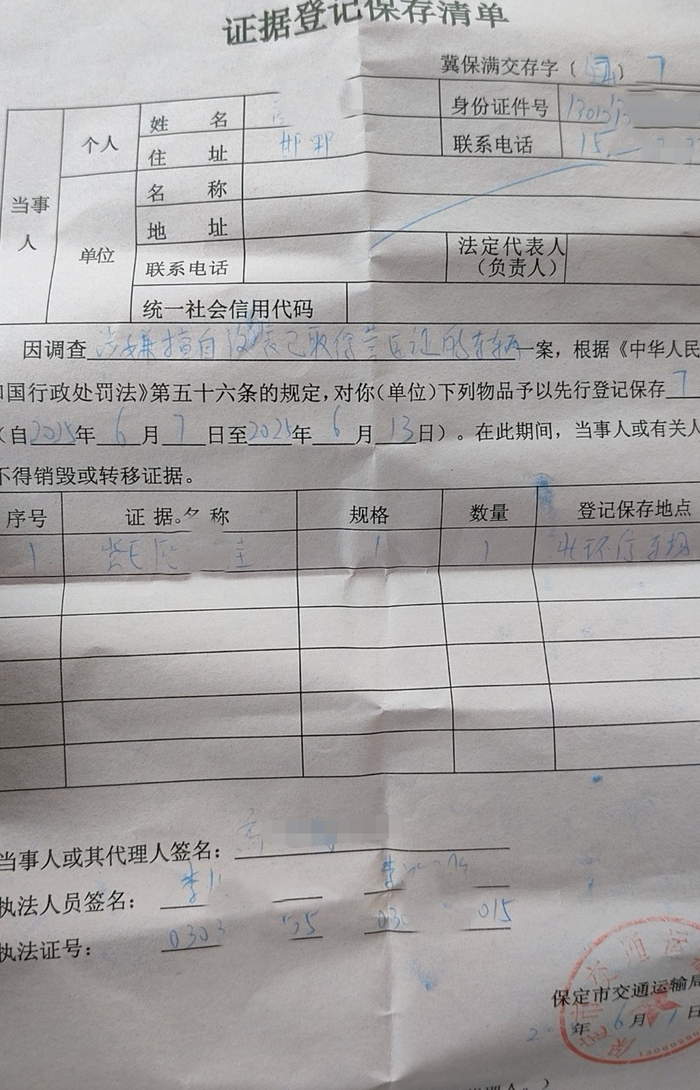 证据登记保存清单
冀保满交存字（ ）7
当事人
个人
姓 名
身份证件号 130
住 址 邯郸
联系电话 15
单位
名 称
地 址
联系电话
法定代表人（负责人）
统一社会信用代码
因调查 涉嫌擅自改装已取得营运证的车辆 一案，根据《中华人民
和国行政处罚法》第五十六条的规定，对你（单位）下列物品予以先行登记保存 7
（自2025年6月7日至2025年6月13日）。在此期间，当事人或有关人
不得销毁或转移证据。
序号 证据名称 规格 数量 登记保存地点
1 冀E 1 1 北环停车场
当事人或其代理人签名：
执法人员签名： 李 李
执法证号： 0303 25 030 015
保定市交通运输局
年6月 日